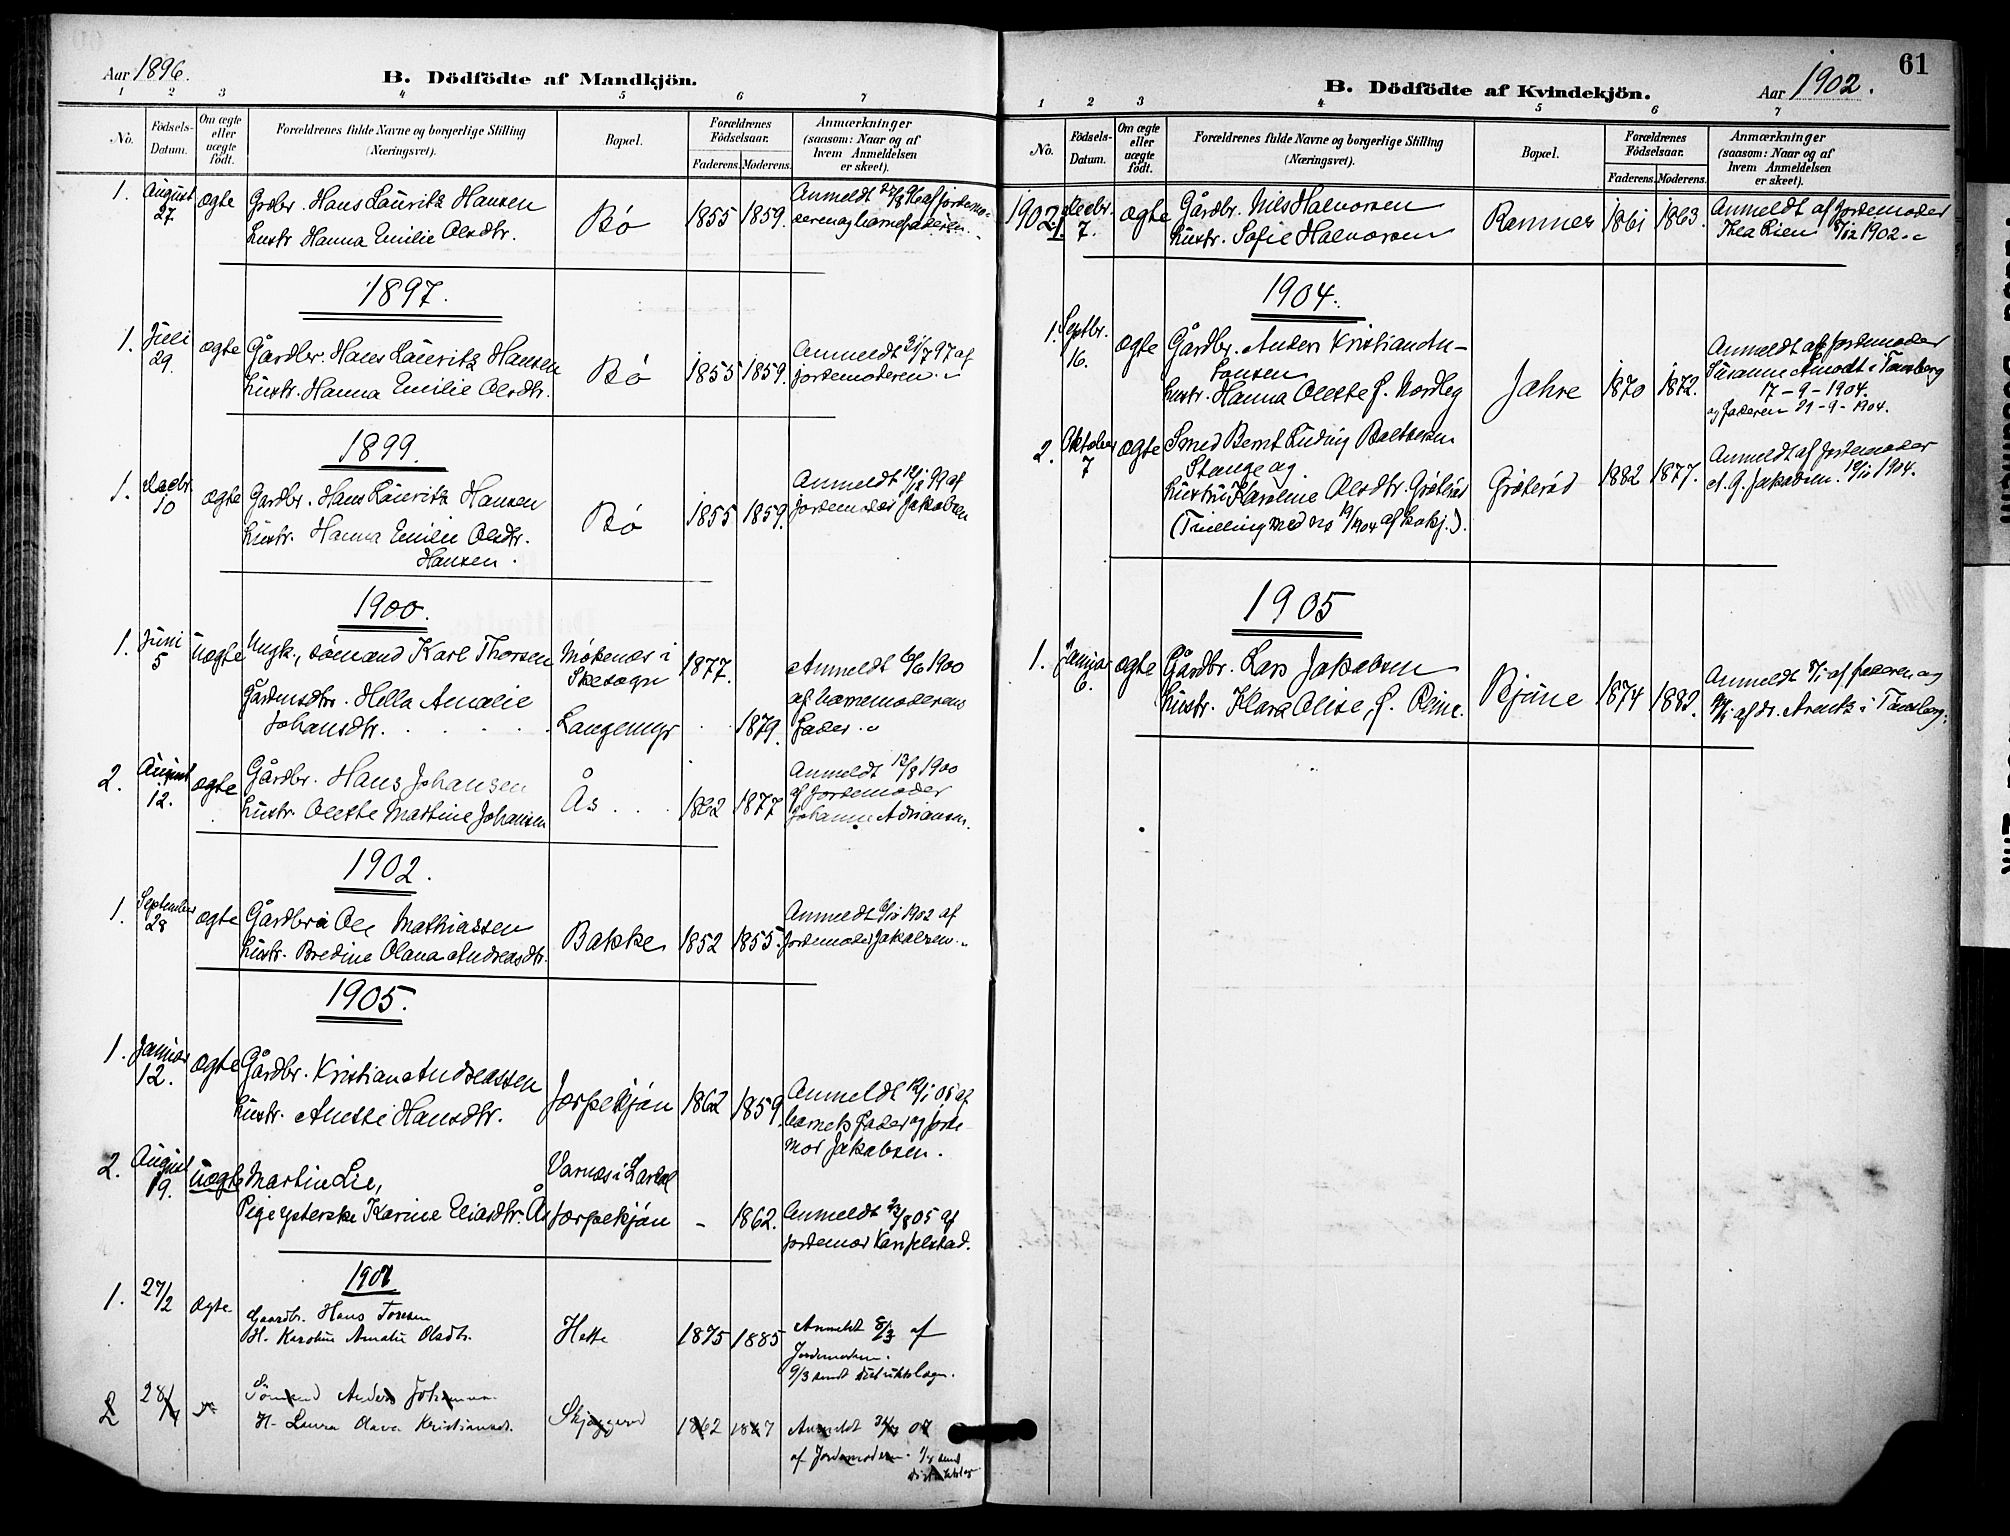 Aar 1896.
B. Dödfödte af Mandkjön.
1 2 3 4 5 6 7
No.
Födsels-
Datum.
Om ægte
eller
uægte
født.
Forældrenes fulde Navne og borgerlige Stilling
(Næringsvei).
Bopæl.
Forældrenes
Födselsaar.
Faderens. Moderens.
Anmærkninger
(saasom: Naar og af
hvem Anmeldelsen
er skeet).
1. August 27. ægte Grdbr. Hans Lauritz Hansen
Hustr. Hanna Emilie Olsdtr.
Bø 1855 1859.
Anmeldt 27/8 96 af jordemo-
deren og barnefaderen.
1897.
1. Juli 29. ægte Gårdbr. Hans Lauritz Hansen
Hustr. Hanna Emilie Olsdtr.
Bø 1855 1859.
Anmeldt 31/7 97 af
jordemoderen.
1899.
1. Decbr. 10 ægte Gardbr. Hans Lauritz Hansen
Hustr. Hanna Emilie Olsdtr.
Hansen.
Bø 1855 1859.
Anmeldt 12/12 99 af
jordemoder Jakobsen
1900.
1. Juni 5 uægte Ungk., sömand Karl Thorsen
Gårdmsdtr. Hella Amalie
Johansdtr.
Møkenæs i
Skesogn
Langemyr
1877.
1879.
Anmeldt 6/6 1900
af barnemoderens
Fader.
2. August 12. ægte Gårdbr. Hans Johansen
Hustr. Olette Martine Johansen
Ås 1862 1877
Anmeldt 13/8 1900
af jordemoder
Johanne Adriansen.
1902.
1. September 28 ægte Gårdbr. Ole Mathiassen
Hustr. Bredine Olava Andreasdtr.
Bakke 1852 1855.
Anmeldt 6/10 1902 af
jordemoder Jakobsen.
1905.
1. Januar 12. ægte Gårdbr. Kristian Andreassen
Hustr. Anette Hansdtr.
Jorpekjøn 1862 1859.
Anmeldt 12/1 05 af
barnets Fader og jorde-
mor Jakobsen.
2. August 19. uægte Martin Lie,
Pige ysterske Karine Eliasdtr. Ås
Varnæs i Lardal
Jorpekjøn - 1862.
Anmeldt 22/8 05 af
jordemor Karjelstad.
1907
1. 27/2 ægte Gaardbr. Hans Toresen
H. Karoline Amalie Olsdtr.
Hette 1875 1885
Anmeldt 8/3 af
Jordemoderen.
9/3 samt distriktslægen.
2 28/ Sömand Anders Johansen
H. Laura Olava Kristiansdt.
Skjeggerød 1862 1867
Anmeldt 07
af Jordemoderen. samt
distriktslæg
61
B. Dödfödte af Kvindekjön.
Aar 1902.
1 2 3 4 5 6 7
No.
Födsels-
Datum.
Om ægte
eller
uægte
født.
Forældrenes fulde Navne og borgerlige Stilling
(Næringsvei).
Bopæl.
Forældrenes
Födselsaar.
Faderens. Moderens.
Anmærkninger
(saasom: Naar og af
hvem Anmeldelsen
er skeet).
1902 1 Decbr. 7. ægte Gårdbr. Nils Halvorsen
Hustr. Sofie Halvorsen
Ramnes 1861 1863.
Anmeldt af Jordemoder
Thea Lien 8/12 1902.
1904.
1. Septbr. 16. ægte Gårdbr. Anders Kristian An-
tonsen
Hustr. Hanna Olette f. Nordby
Jahre 1870 1872.
Anmeldt af Jordemoder
Susanne Amodt i Tønsberg
17-9-1904.
og faderen 21-9-1904.
2. Oktober 7 ægte Smed Bernt Ludvig Baltsersen
Stange og
Hustru Karoline Olsdtr. Gröterød
(Tvilling med no 19/1904 af Kvkj.).
Gröterød 1882 1877.
Anmeldt af Jordemoder
A. G. Jakobsen. 10/10 1904.
1905
1. Januar 6. ægte Gårdbr. Lars Jakobsen
Hustr. Klara Olise, f. Reine.
Bjüne 1874 1882.
Anmeldt 7/1 af faderen og
9/1 af dr. Arentz i Tønsberg.